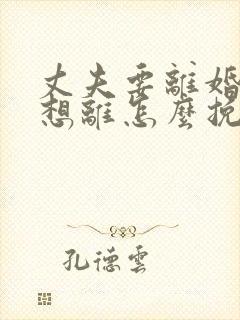 丈夫要離婚
想離怎麼挽
孔德雲